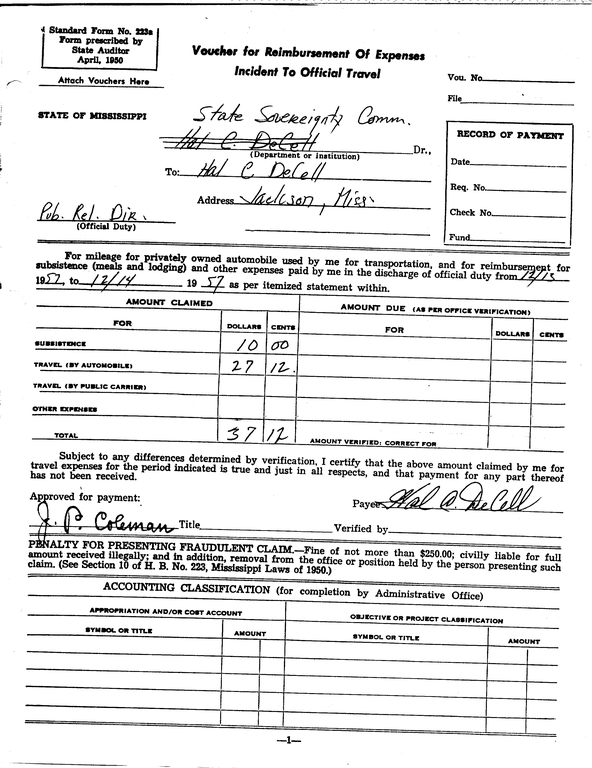 Standard Form No. 223a
Form prescribed by
State Auditor
April, 1950
Attach Vouchers Here
Voucher for Reimbursement Of Expenses
Incident To Official Travel
Vou. No.
File
STATE OF MISSISSIPPI
State Sovereignty Comm.
Hal C. DeCell
(Department or institution)
Dr.,
To: Hal C DeCell
Address Jackson, Miss.
Pub. Rel. Dir.
(Official Duty)
RECORD OF PAYMENT
Date
Req. No.
Check No.
Fund
For mileage for privately owned automobile used by me for transportation, and for reimbursement for
subsistence (meals and lodging) and other expenses paid by me in the discharge of official duty from 12/13
1957, to 12/14 1957 as per itemized statement within.
AMOUNT CLAIMED
AMOUNT DUE (AS PER OFFICE VERIFICATION)
FOR DOLLARS CENTS FOR DOLLARS CENTS
SUBSISTENCE 10 00
TRAVEL (BY AUTOMOBILE) 27 12.
TRAVEL (BY PUBLIC CARRIER)
OTHER EXPENSES
TOTAL 37 12 AMOUNT VERIFIED: CORRECT FOR
Subject to any differences determined by verification, I certify that the above amount claimed by me for
travel expenses for the period indicated is true and just in all respects, and that payment for any part thereof
has not been received.
Approved for payment:
Payee Hal C. DeCell
J. P. Coleman Title Verified by
PENALTY FOR PRESENTING FRAUDULENT CLAIM.—Fine of not more than $250.00; civilly liable for full
amount received illegally; and in addition, removal from the office or position held by the person presenting such
claim. (See Section 10 of H. B. No. 223, Mississippi Laws of 1950.)
ACCOUNTING CLASSIFICATION (for completion by Administrative Office)
APPROPRIATION AND/OR COST ACCOUNT OBJECTIVE OR PROJECT CLASSIFICATION
SYMBOL OR TITLE AMOUNT SYMBOL OR TITLE AMOUNT
—1—